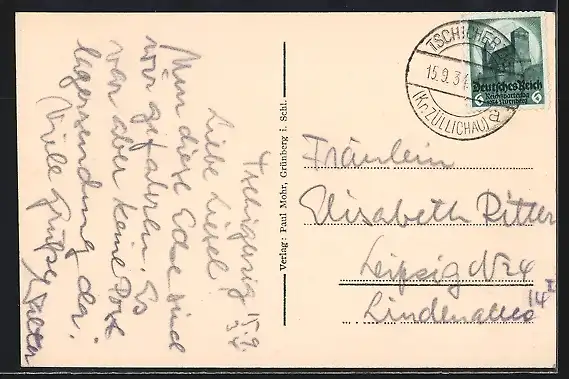 Tschicherzig 15.9.34
Liebe Liesel
Nun diese Ecke sind
wir gefahren. Es
war aber keine Post
lagersendung da.
Viele Grüße Walter
Verlag: Paul Mohr, Grünberg i. Schl.
TSCHICHERZIG
15.9.34
(Kr. ZÜLLICHAU)
a
Deutsches Reich
Reichsparteitag
1934 Nürnberg
6 6
Fräulein
Elisabeth Ritter
Leipzig N24
Lindenallee 14 I